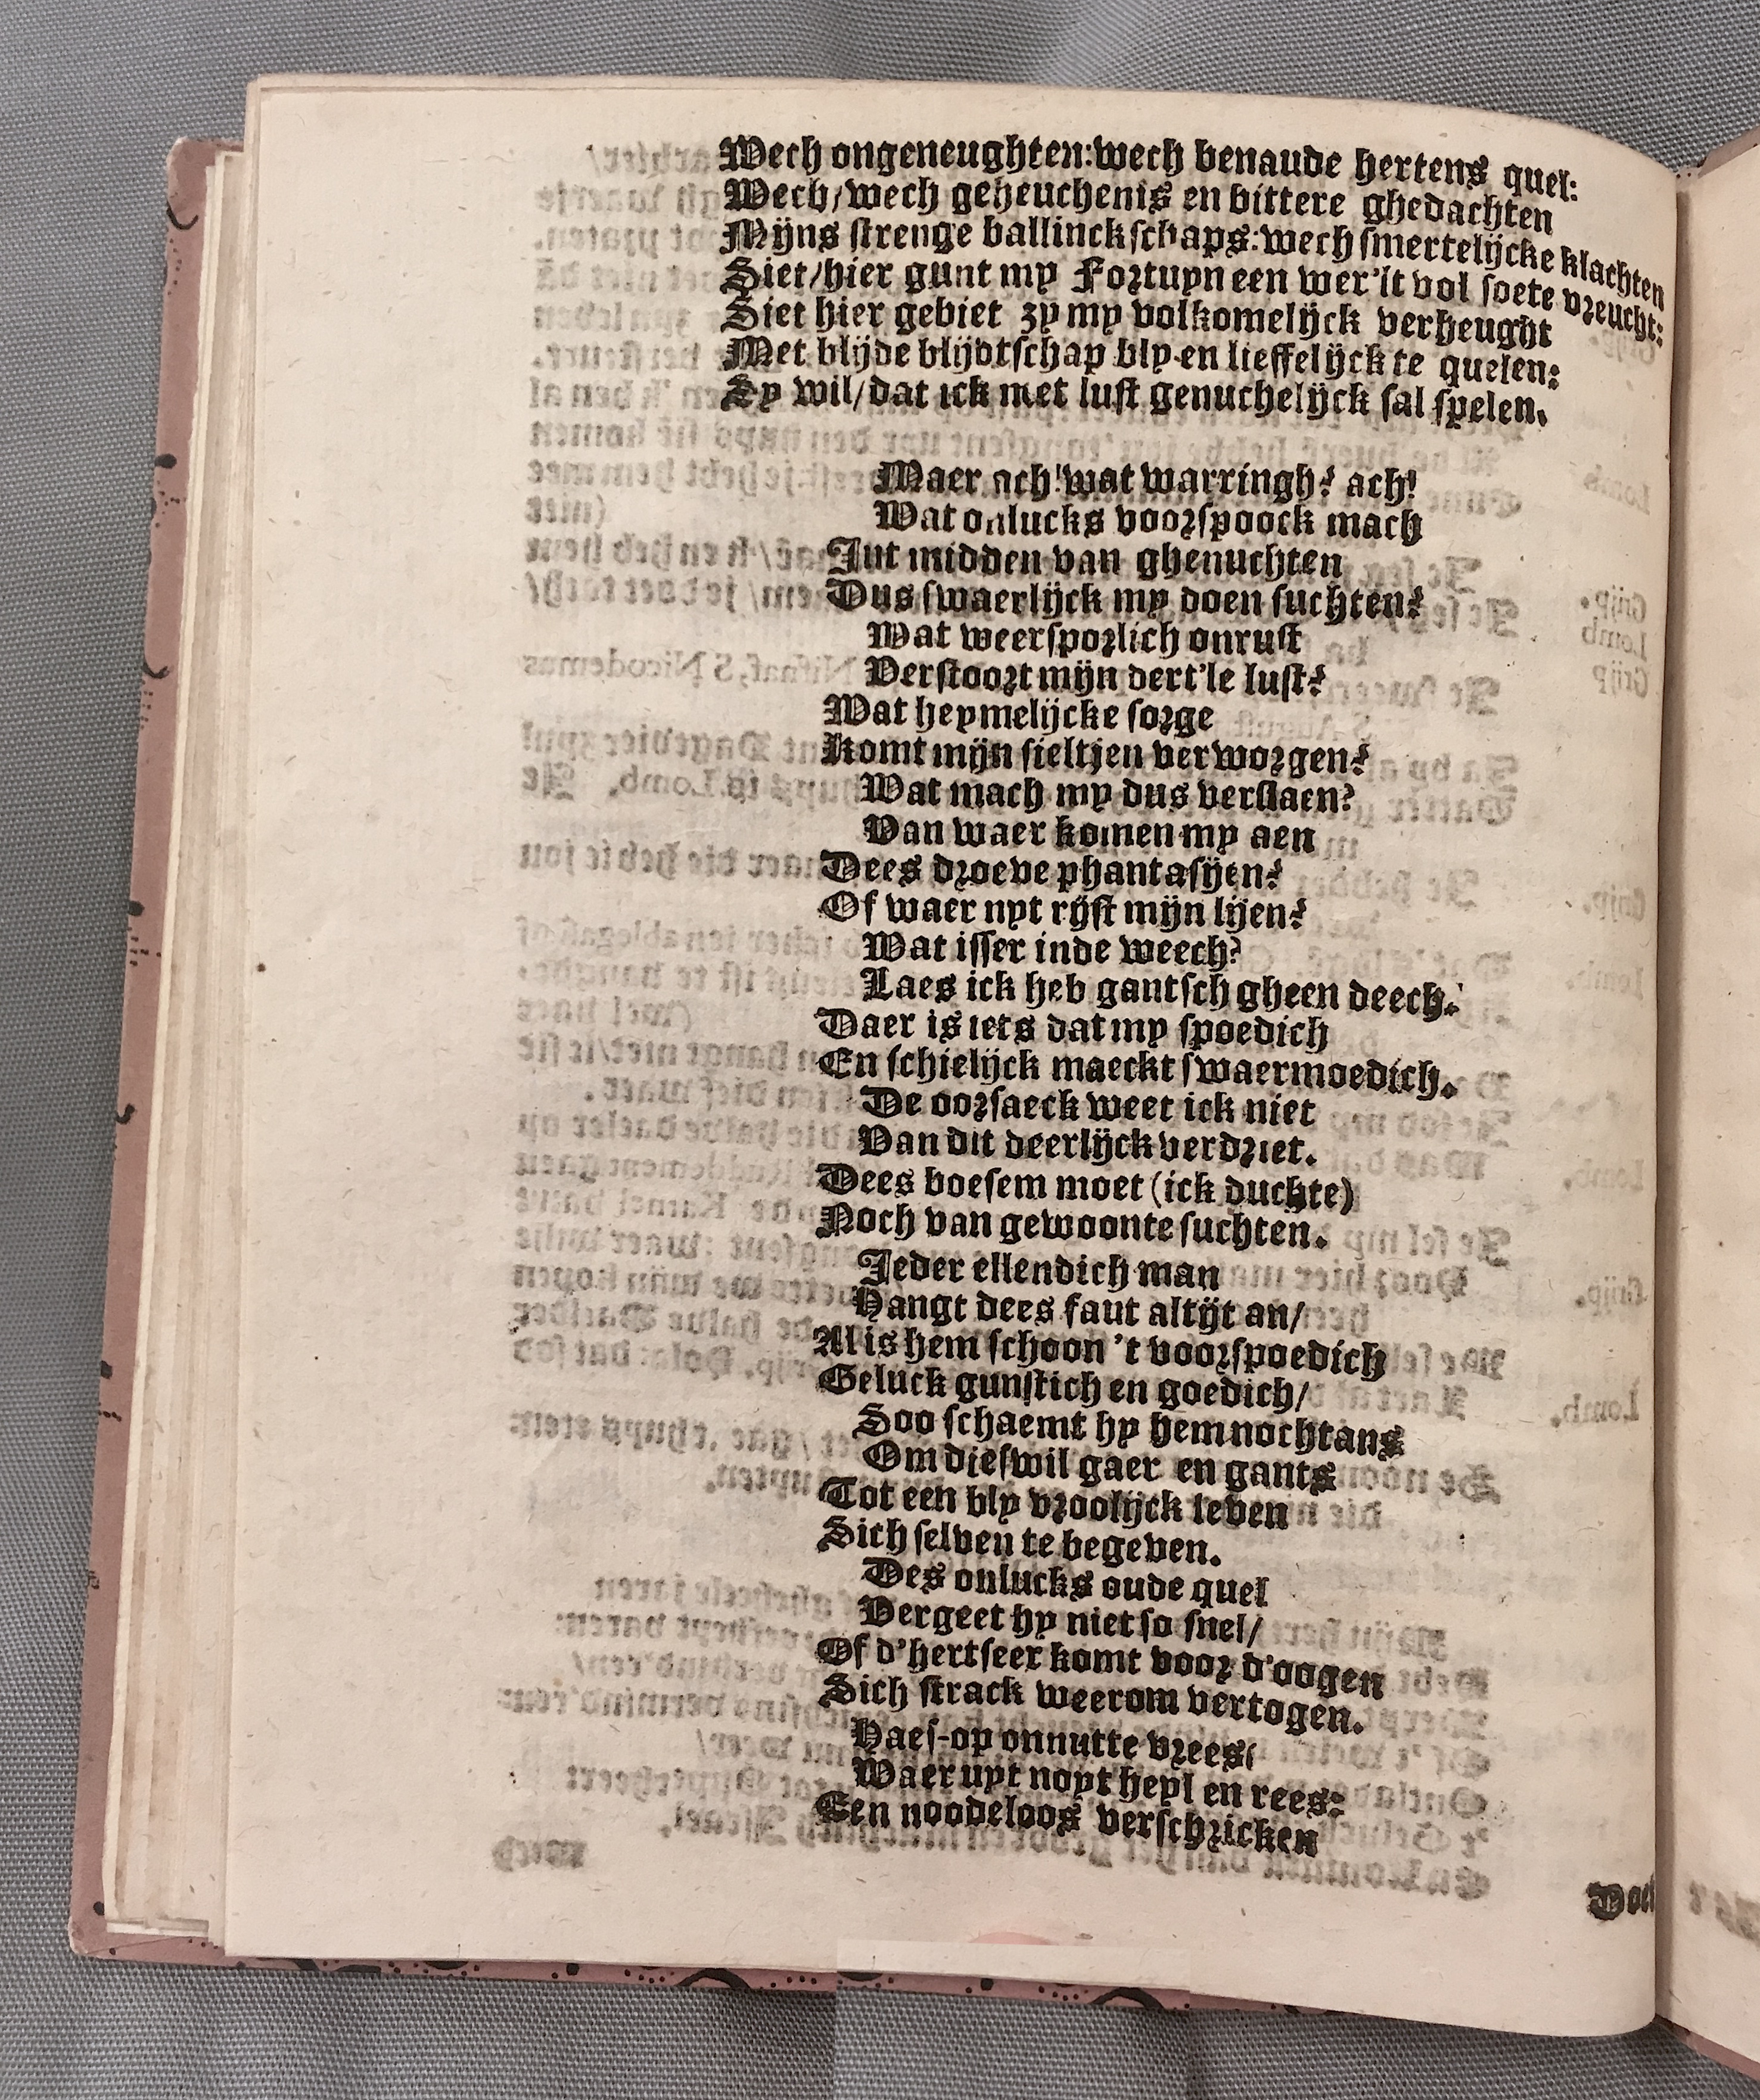 Wech ongeneughten: wech benaude hertens quel:
Wech/ wech geheuchenis en bittere ghedachten
Mijns strenge ballinckschaps: wech smertelijcke klachten
Siet/ hier gunt my Fortuyn een wer'lt vol soete vreucht:
Siet hier gebiet zy my volkomelijck verheught
Met blijde blijdtschap bly en lieffelijck te quelen:
Sy wil/ dat ick met lust genuchelijck sal spelen.
Maer ach! wat warringh? ach!
Wat onlucks voorspoock mach
Int midden van ghenuchten
Dus swaerlijck my doen suchten?
Wat weersporlich onrust
Verstoort mijn dert'le lust?
Wat heymelijcke sorge
Komt mijn sieltjen verworgen?
Wat mach my dus verslaen?
Van waer komen my aen
Dees droeve phantasijen?
Of waer uyt rijst mijn lijen?
Wat isser inde weech?
Laes ick heb gantsch gheen deech.
Daer is iets dat my spoedich
En schielijck maeckt swaermoedich.
De oorsaeck weet ick niet
Van dit deerlijck verdriet.
Dees boesem moet (ick duchte)
Noch van gewoonte suchten.
Ieder ellendich man
Hangt dees faut altijt an/
Al is hem schoon 't voorspoedich
Geluck gunstich en goedich/
Soo schaemt hy hem nochtans
Om dieswil gaer en gants
Tot een bly vroolijck leven
Sich selven te begeven.
Des onlucks oude quel
Vergeet hy niet so snel/
Of d'hertseer komt voor d'oogen
Sich strack weerom vertogen.
Haes-op onnutte vrees/
Waer uyt noyt heyl en rees:
Een noodeloos verschricken